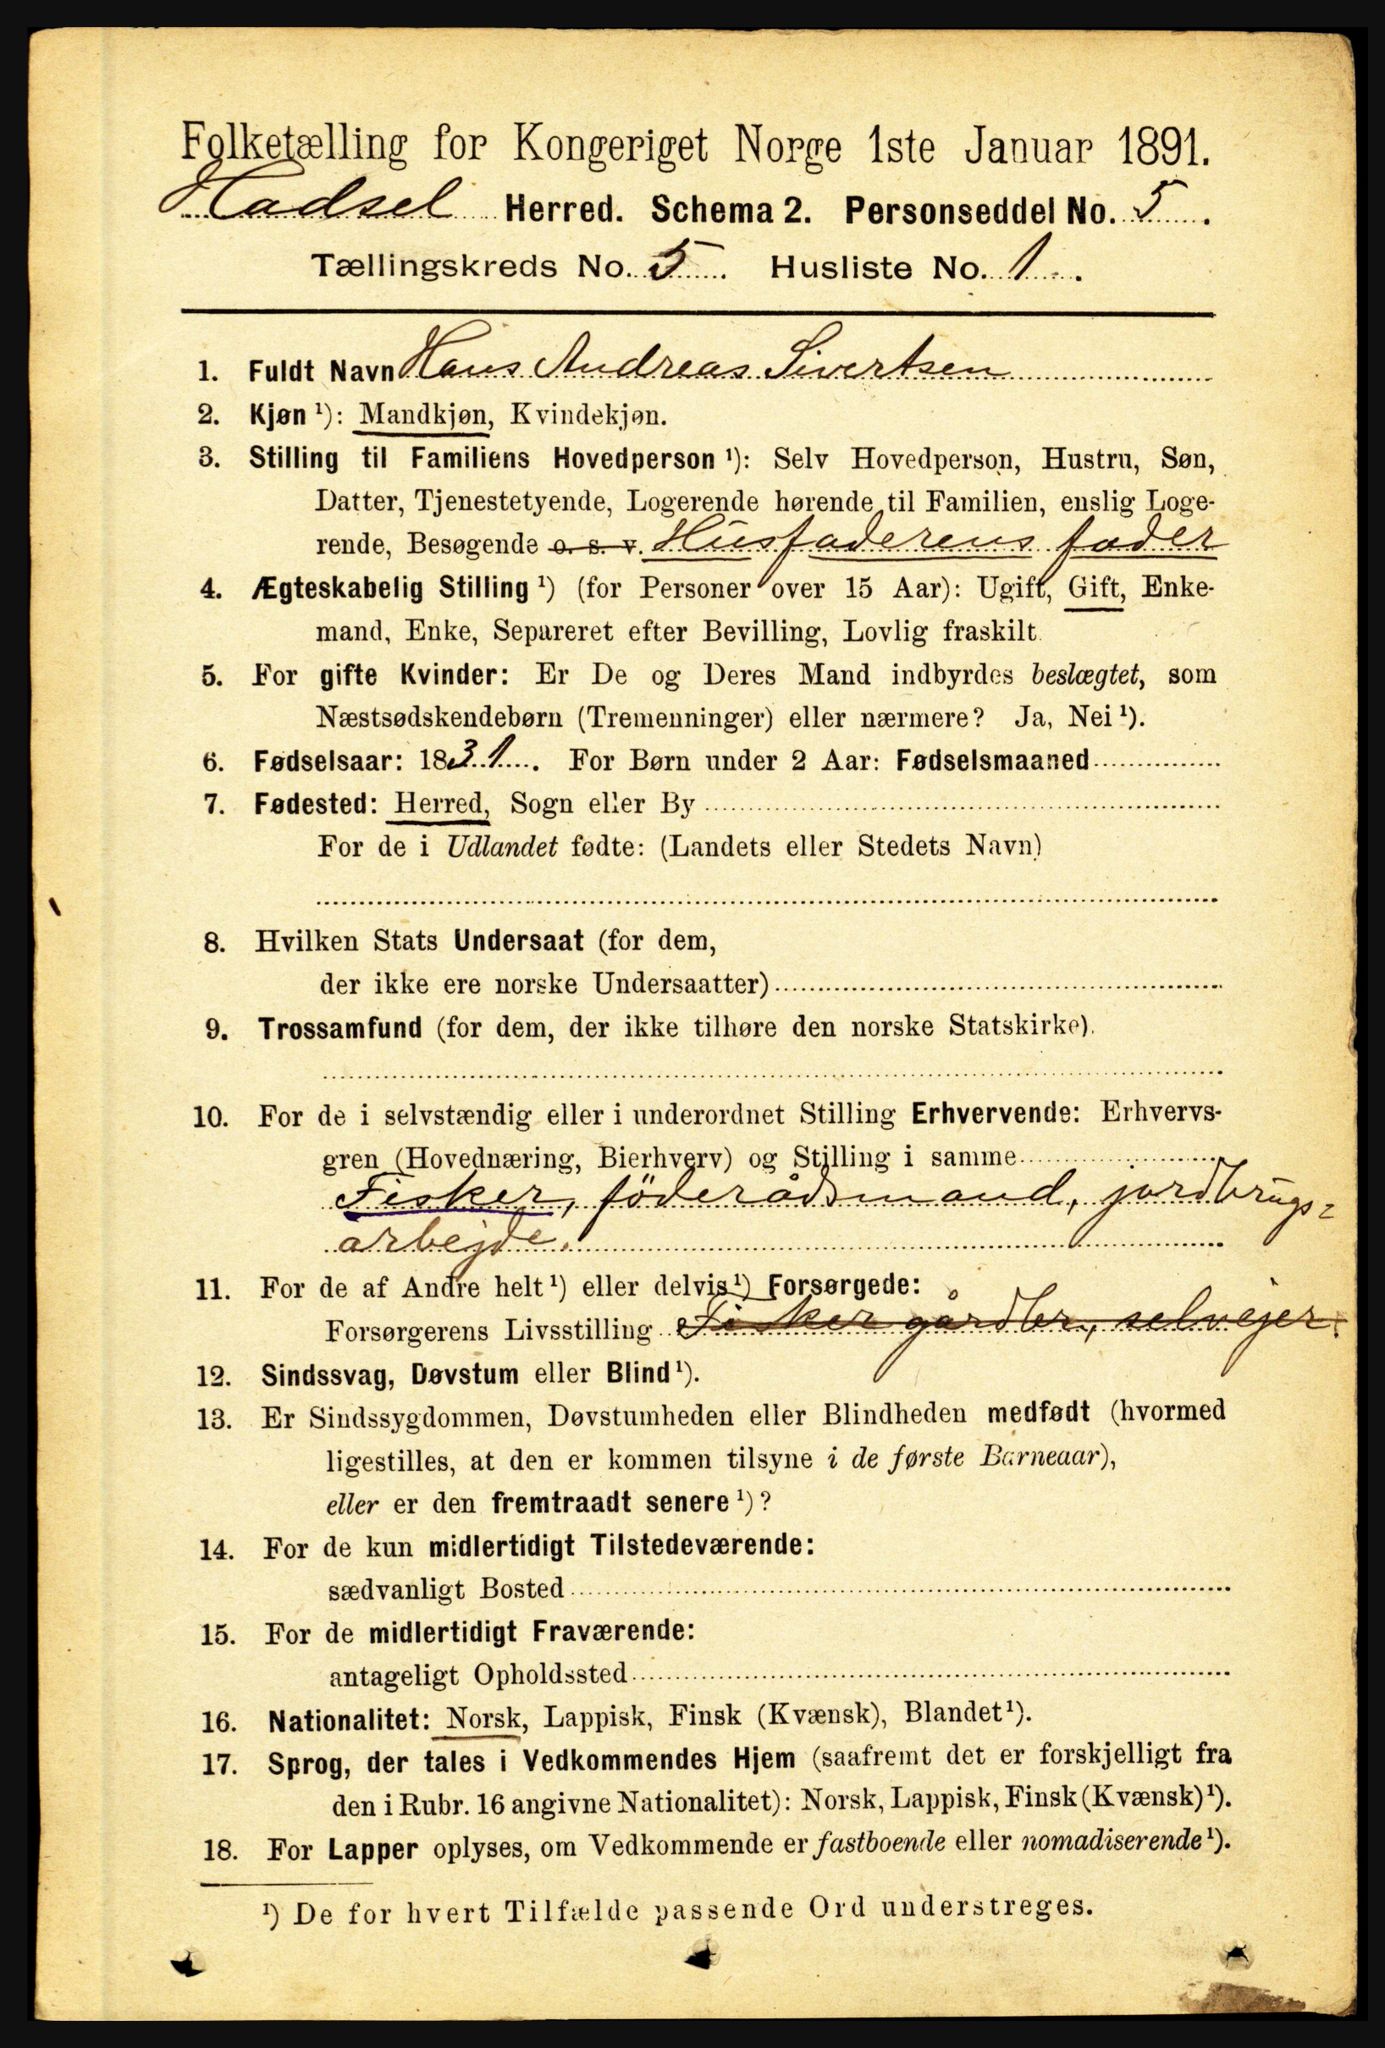 Folketælling for Kongeriget Norge 1ste Januar 1891.
Hadsel Herred. Schema 2. Personseddel No. 5.
Tællingskreds No. 5. Husliste No. 1.
1. Fuldt Navn Hans Andreas Sivertsen
2. Kjøn ¹): Mandkjøn, Kvindekjøn.
3. Stilling til Familiens Hovedperson ¹): Selv Hovedperson, Hustru, Søn,
Datter, Tjenestetyende, Logerende hørende til Familien, enslig Loge-
rende, Besøgende o. s. v. Husfaderens fader
4. Ægteskabelig Stilling ¹) (for Personer over 15 Aar): Ugift, Gift, Enke-
mand, Enke, Separeret efter Bevilling, Lovlig fraskilt
5. For gifte Kvinder: Er De og Deres Mand indbyrdes beslægtet, som
Næstsødskendebørn (Tremenninger) eller nærmere? Ja, Nei ¹).
6. Fødselsaar: 1831. For Børn under 2 Aar: Fødselsmaaned
7. Fødested: Herred, Sogn eller By
For de i Udlandet fødte: (Landets eller Stedets Navn)
8. Hvilken Stats Undersaat (for dem,
der ikke ere norske Undersaatter)
9. Trossamfund (for dem, der ikke tilhøre den norske Statskirke).
10. For de i selvstændig eller i underordnet Stilling Erhvervende: Erhvervs-
gren (Hovednæring, Bierhverv) og Stilling i samme
Fisker, föderådsmand, jordbrugs=
arbejde.
11. For de af Andre helt ¹) eller delvis ¹) Forsørgede:
Forsørgerens Livsstilling Fisker gårdbr, selvejer.
12. Sindssvag, Døvstum eller Blind ¹).
13. Er Sindssygdommen, Døvstumheden eller Blindheden medfødt (hvormed
ligestilles, at den er kommen tilsyne i de første Barneaar),
eller er den fremtraadt senere ¹)?
14. For de kun midlertidigt Tilstedeværende:
sædvanligt Bosted
15. For de midlertidigt Fraværende:
antageligt Opholdssted
16. Nationalitet: Norsk, Lappisk, Finsk (Kvænsk), Blandet ¹).
17. Sprog, der tales i Vedkommendes Hjem (saafremt det er forskjelligt fra
den i Rubr. 16 angivne Nationalitet): Norsk, Lappisk, Finsk (Kvænsk) ¹).
18. For Lapper oplyses, om Vedkommende er fastboende eller nomadiserende ¹).
¹) De for hvert Tilfælde passende Ord understreges.